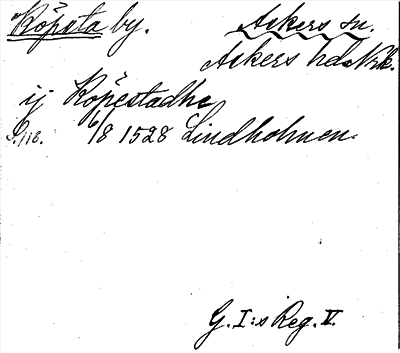 Köpsta by. Askers sn.
Askers hd Nrk.
ij Köpestadhe
S. 118. 6/8 1528 Lindholmen.
G. I:s Reg. V.